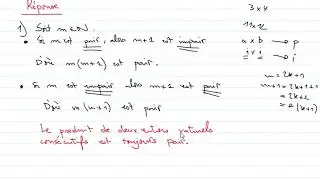 Réponse
1) Soit m ∈ ℕ.
• Si m est pair, alors m+1 est impair
D'où m(m+1) est pair.
• Si m est impair alors m+1 est pair
D'où m(m+1) est pair.
Le produit de deux entiers naturels
consécutifs est toujours pair.
3 x 4
11 x 12
a x b → p
i x i → i
m = 2k+1
m+1 = 2k+1+1
= 2k+2
= 2(k+1)